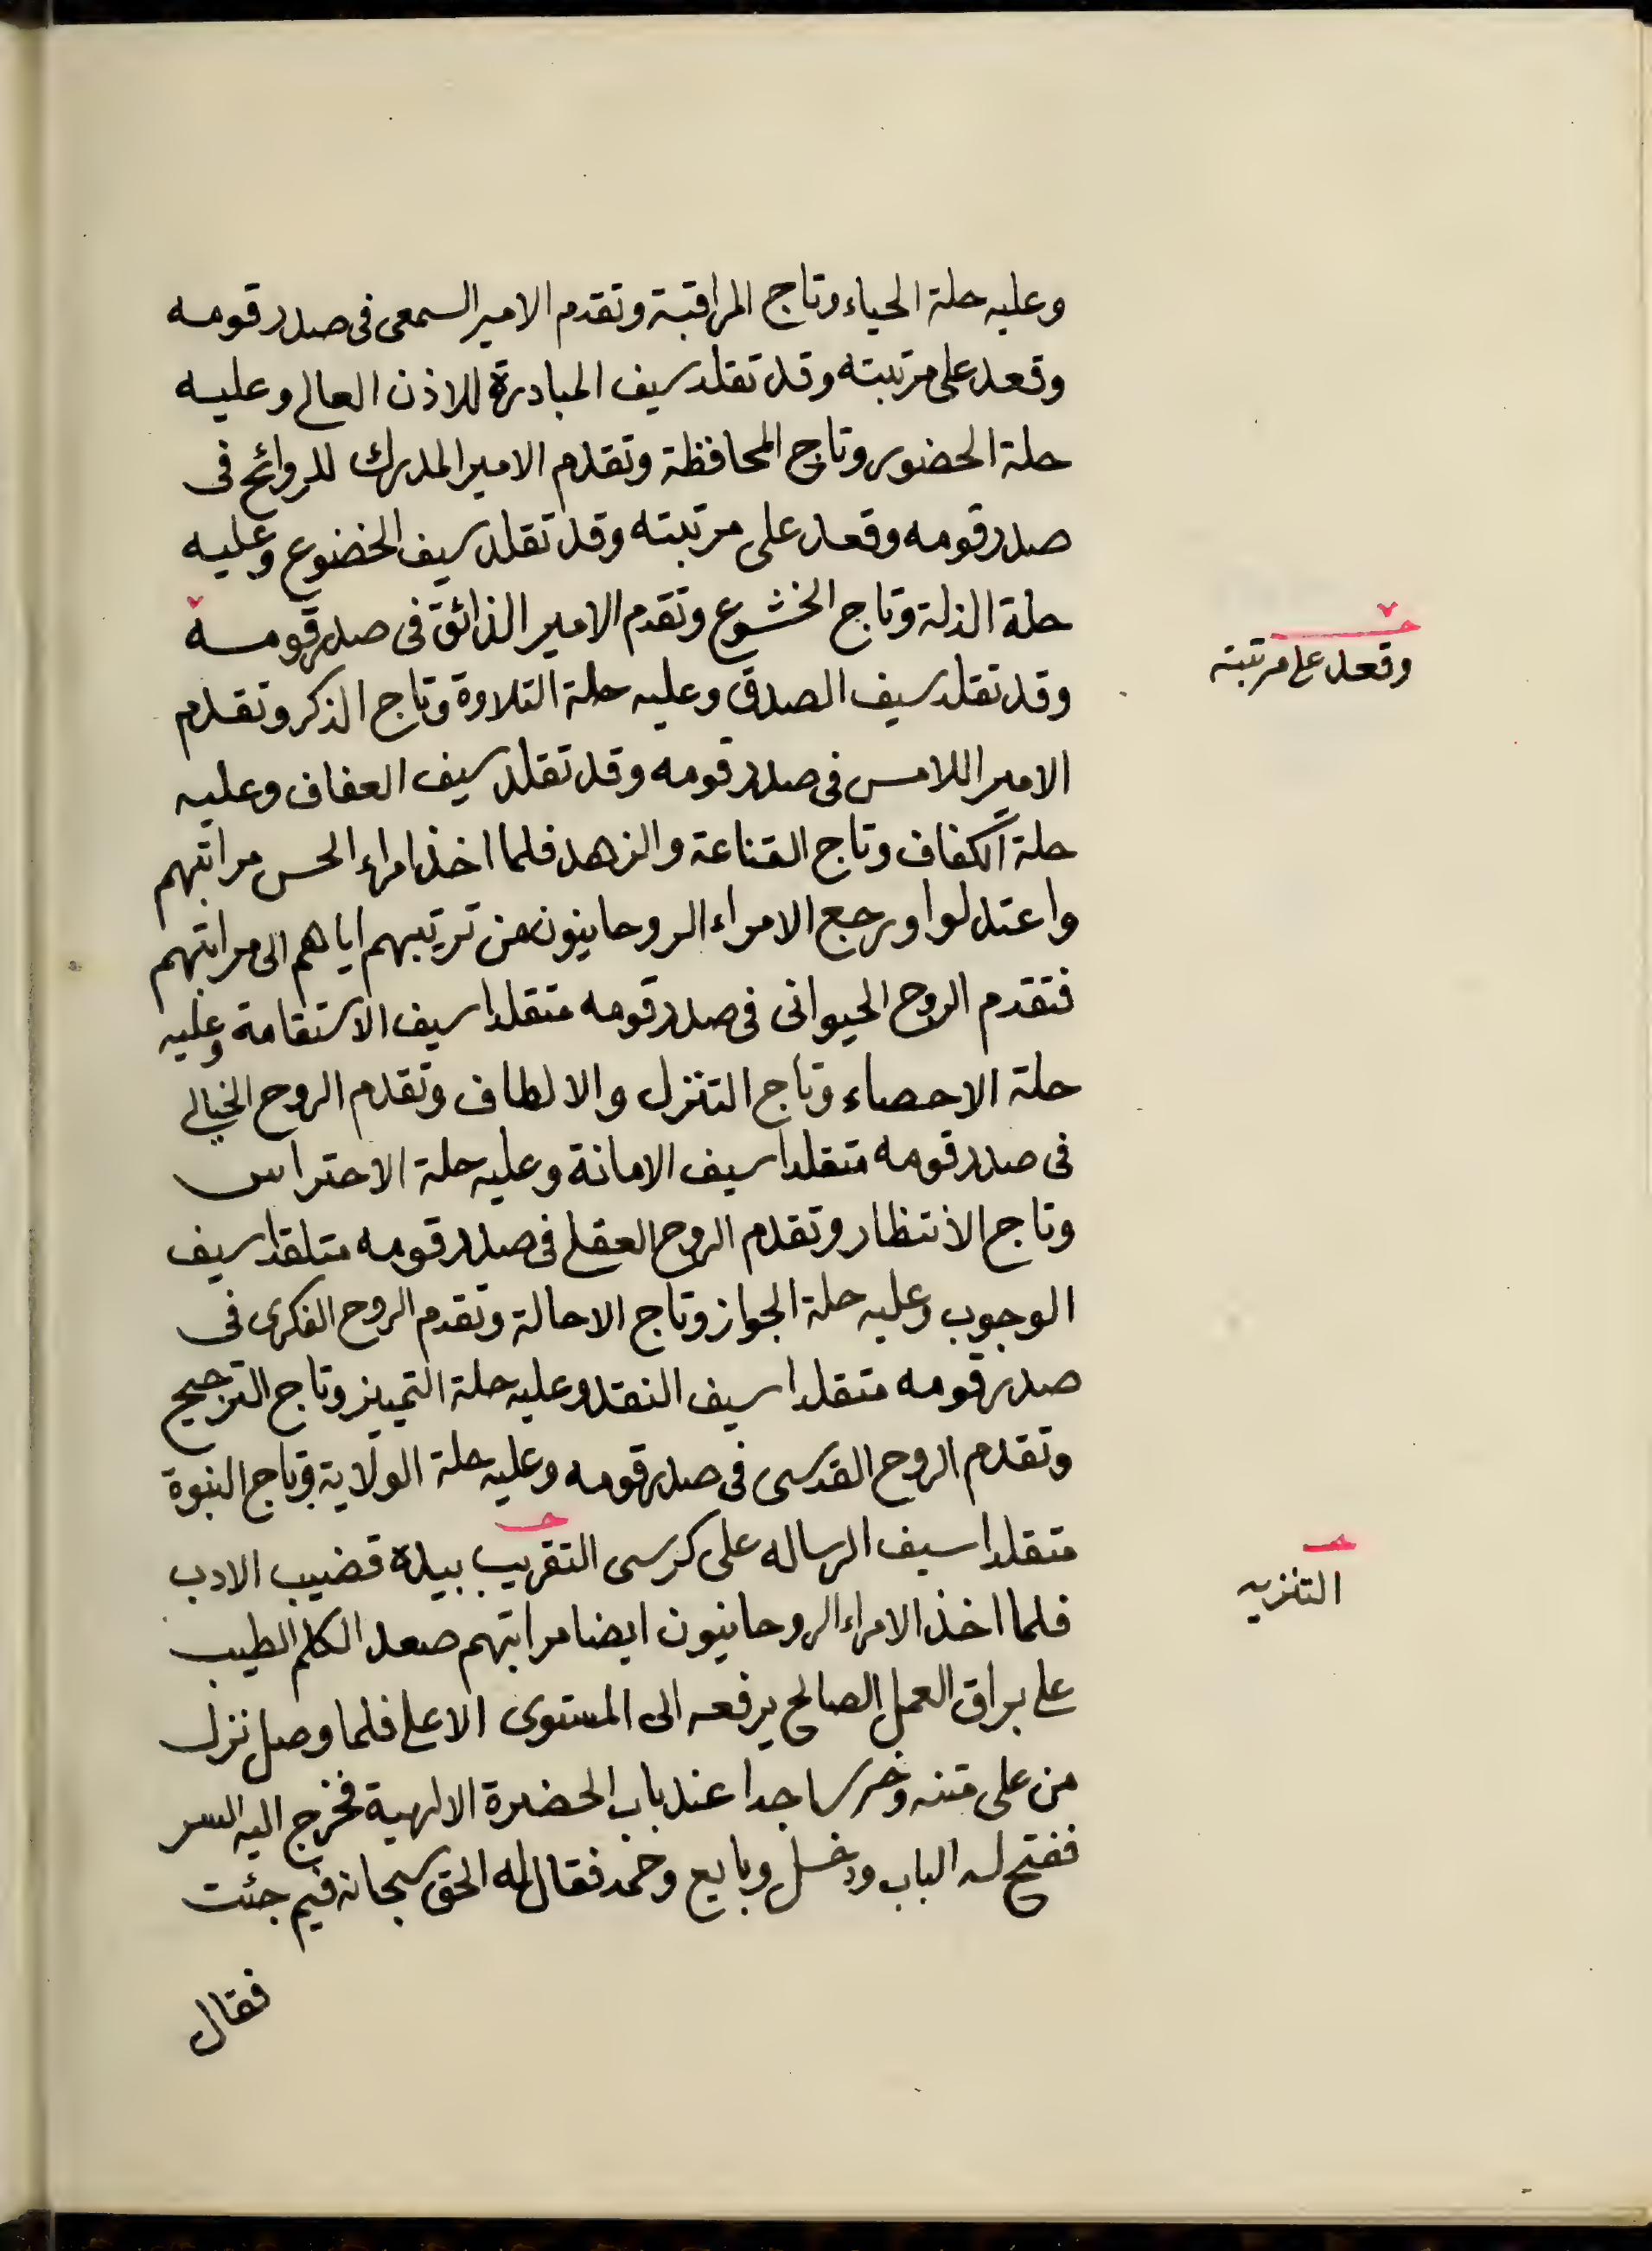 وعليه حلة الحياء وتاج المراقبة وتقدم الامير السمعى فى صدر قومه
وقعد على مرتبته وقد تقلد سيف المبادرة للاذن العالى وعليه
حلة الحضور وتاج المحافظة وتقدم الامير المدرك للروائح فى
صدر قومه وقعد على مرتبته وقد تقلد سيف الخضوع وعليه
حلة الذلة وتاج الخشوع وتقدم الامير الذائق فى صدر قومه
وقعد على مرتبته
وقد تقلد سيف الصدق وعليه حلة التلاوة وتاج الذكر وتقدم
الامير اللامس فى صدر قومه وقد تقلد سيف العفاف وعليه
حلة الكفاف وتاج القناعة والزهد فلما اخذ امراء الحس مراتبهم
واعتدلوا ورجع الامراء الروحانيون من ترتيبهم اياهم الى مراتبهم
فتقدم الروح الحيوانى فى صدر قومه متقلدا سيف الاستقامة وعليه
حلة الاحصاء وتاج التنزل والالطاف وتقدم الروح الخيالى
فى صدر قومه متقلدا سيف الامانة وعليه حلة الاحتراس
وتاج الانتظار وتقدم الروح العقلى فى صدر قومه متلقدا سيف
الوجوب وعليه حلة الجواز وتاج الاحالة وتقدم الروح الفكرى فى
صدر قومه متقلدا سيف النقد وعليه حلة التمييز وتاج الترجيح
وتقدم الروح القدسى فى صدر قومه وعليه حلة الولاية وتاج النبوة
متقلدا سيف الرساله على كرسى التقريب بيده قضيب الادب
التنزيه
فلما اخذ الامراء الروحانيون ايضا مراتبهم صعد الكلم الطيب
على براق العمل الصالح يرفعه الى المستوى الاعلى فلما وصل نزل
من على متنه وخر ساجدا عند باب الحضرة الالهية فخرج اليه السر
ففتح له الباب ودخل وبايع وحمد فقال له الحق سبحانه فيم جئت
فقال